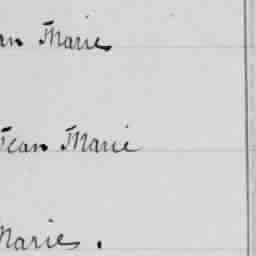 an Marie
Jean Marie
Marie.